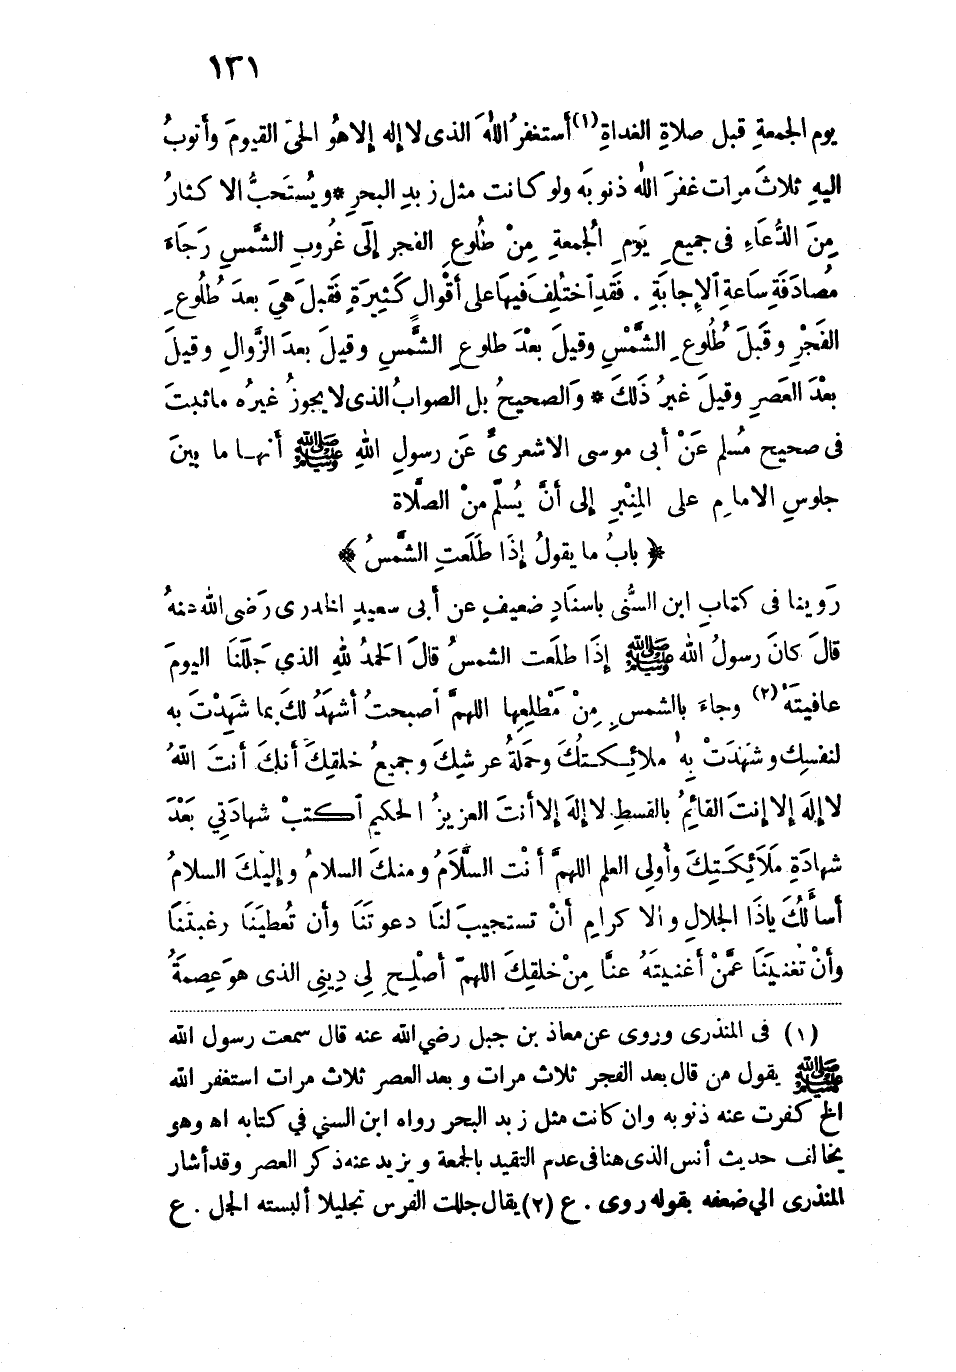 ١٣١
يوم الجمعةِ قبل صلاةِ الغداةِ (١) أستغفرُ اللهَ الذى لا إله إلا هُو الحىّ القيومَ وأتوبُ
اليهِ ثلاثَ مرات غفرَ اللهُ ذنوبَه ولو كانت مثل زبدِ البحرِ * ويُستَحبُّ الاكثارُ
مِنَ الدُّعَاءِ فى جميعِ يَومِ الْجمعةِ مِنْ طُلوعِ الفجر إلَى غُروبِ الشَّمسِ رَجَاءَ
مُصادَفَةِ سَاعةِ الإجابَةِ . فَقَدِ اختُلِفَ فيهَا على أقْوالٍ كَثِيرَةٍ فقيلَ هىَ بعدَ طُلوعِ
الفَجْرِ وقَبلَ طُلُوعِ الشَّمْسِ وقيلَ بعْدَ طلوعِ الشَّمسِ وقيلَ بعدَ الزَّوالِ وقيلَ
بعْدَ العَصرِ وقيلَ غيرُ ذَلكَ * وَالصحيحُ بل الصوابُ الذى لا يجوزُ غيرُه ماثبتَ
فى صحيح مُسلم عَنْ أبى موسى الاشعرىِّ عَن رسولِ اللهِ ﷺ أنها ما بينَ
جلوسِ الامامِ على المِنْبرِ إلى أنَّ يُسلّم منْ الصَّلاة
﴿ بابُ ما يقولُ إذَا طَلَعَتِ الشَّمسُ ﴾
رَوينا فى كتابِ ابن السُّنى باسنَادٍ ضعيفٍ عن أبى سعيدٍ الخدرى رَضى الله عنهُ
قالَ كانَ رسولُ الله ﷺ إذَا طلَعَت الشمسُ قالَ الحَمدُ للهِ الذي جَلَّلنَا اليومَ
عافيتَهْ (٢) وجاءَ بالشمسِ مِنْ مَطْلِعِها اللهمَّ أصبحتُ أشهَدُ لكَ بما شَهِدْتَ به
لنفسِك وشَهدَتْ بِهِ ملائِكتُكَ وحَملةُ عرشِكَ وجميعُ خلقِكَ أنكَ أنتَ اللهُ
لا إلهَ إلا إنتَ القائِمُ بالقسطِ لا إلهَ إلا أنتَ العزيزُ الحكيم أكتبْ شهادَتِي بَعْدَ
شهادَةِ مَلَائِكَتِكَ وأُولى العلم اللهمَّ أنْت السَّلَامُ ومنكَ السلامُ وإليْكَ السلامُ
أسألُكَ ياذَا الجلالِ والاكرامِ أنْ تستجيبَ لنَا دعوتَنَا وأن تُعطيَنَا رغبتَنَا
وأنْ تغنيَنَا عمَّنْ أغنيتَهُ عنَّا مِنْ خلقِكَ اللهمّ أصلِح لِى دِينِى الذى هوَ عِصمَةُ
(١) فى المنذرى وروى عن معاذ بن جبل رضي الله عنه قال سمعت رسول الله
ﷺ يقول من قال بعد الفجر ثلاث مرات وبعد العصر ثلاث مرات استغفر الله
الخ كفرت عنه ذنوبه وان كانت مثل زبد البحر رواه ابن السني في كتابه اه وهو
يخالف حديث أنس الذى هنا فى عدم التقيد بالجمعة ويزيد عنه ذكر العصر وقد أشار
المنذرى الي ضعفه بقوله روى . ع (٢) يقال جللت الفرس تجليلا ألبسته الجل . ع